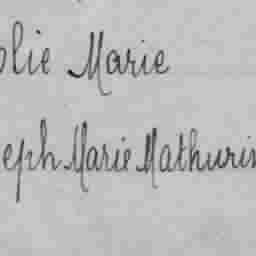 olie Marie
eph Marie Mathurin